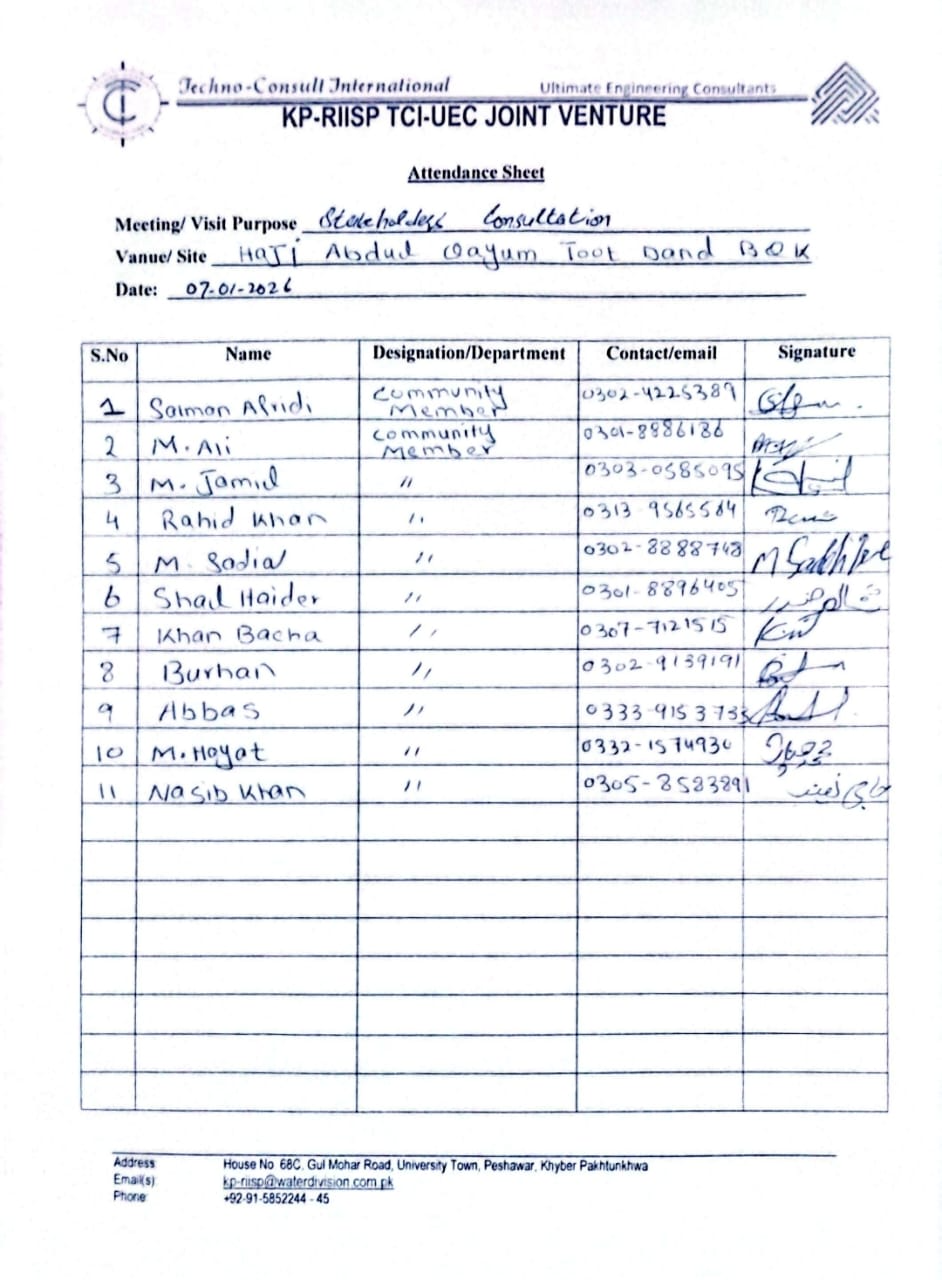 Techno-Consult International Ultimate Engineering Consultants
KP-RIISP TCI-UEC JOINT VENTURE
Attendance Sheet
Meeting/ Visit Purpose Stakeholders Consultation
Vanue/ Site HaJi Abdul Qayum Toot Dand BQK
Date: 07-01-2026
S.No Name Designation/Department Contact/email Signature
1 Salman Afridi Community Member 0302-4225389
2 M. Ali Community Member 0301-8886186
3 M. Jamil 〃 0303-0585095
4 Rahid Khan 〃 0313-9565564
5 M. Sadiq 〃 0302-8888748
6 Shad Haider 〃 0301-8896405
7 Khan Bacha 〃 0307-7121515
8 Burhan 〃 0302-9139191
9 Abbas 〃 0333-9153733
10 M. Hayat 〃 0332-1574930
11 Nasib Khan 〃 0305-8583891
Address House No 68C, Gul Mohar Road, University Town, Peshawar, Khyber Pakhtunkhwa
Email(s) kp-riisp@waterdivision.com.pk
Phone +92-91-5852244 - 45